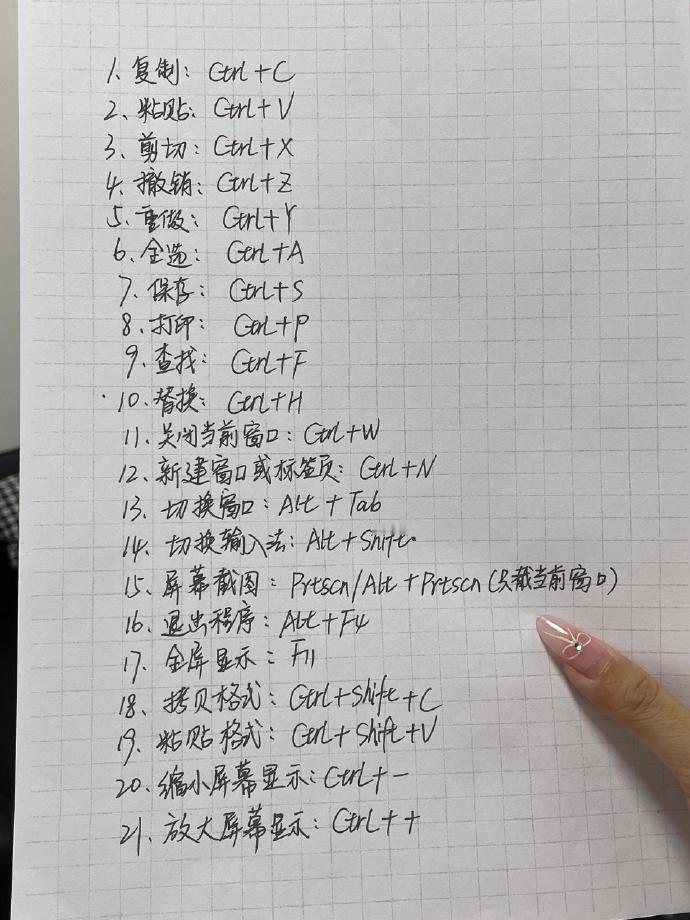 1、复制：Ctrl+C
2、粘贴：Ctrl+V
3、剪切：Ctrl+X
4、撤销：Ctrl+Z
5、重做：Ctrl+Y
6、全选：Ctrl+A
7、保存：Ctrl+S
8、打印：Ctrl+P
9、查找：Ctrl+F
10、替换：Ctrl+H
11、关闭当前窗口：Ctrl+W
12、新建窗口或标签页：Ctrl+N
13、切换窗口：Alt+Tab
14、切换输入法：Alt+Shift
15、屏幕截图：Prtscn/Alt+Prtscn(只截当前窗口)
16、退出程序：Alt+F4
17、全屏显示：F11
18、拷贝格式：Ctrl+Shift+C
19、粘贴格式：Ctrl+Shift+V
20、缩小屏幕显示：Ctrl+-
21、放大屏幕显示：Ctrl++